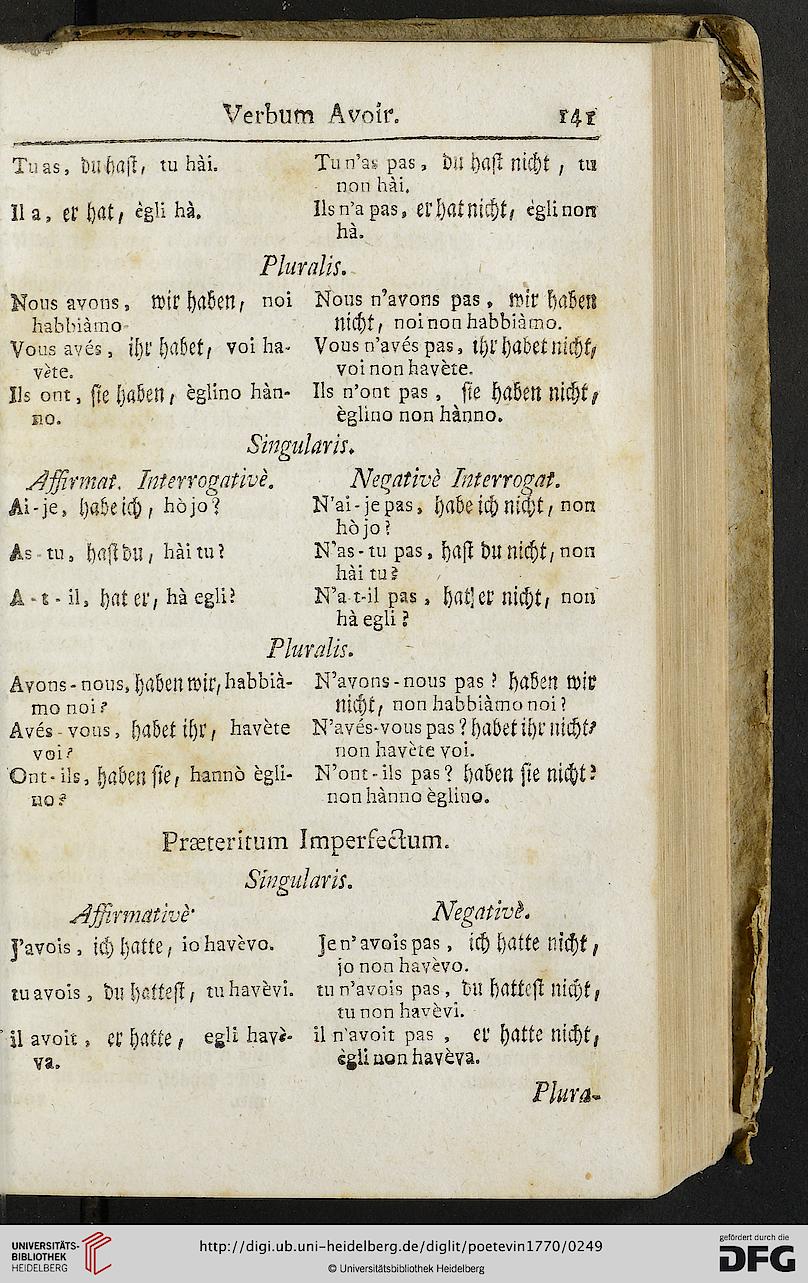 Verbum Avoir. 141
Tu as, du hast, tu hài.
Il a, er hat, ègli hà.
Tu n'as pas, du hast nicht, tu
non hài.
Ils n'a pas, er hat nicht, egli non
hà.
Pluralis.
Nous avons, wir haben, noi
habbiàmo
Vous avés, ihr habet, voi ha-
vète.
Ils ont, sie haben, èglino hàn-
no.
Nous n'avons pas, wir haben
nicht, noi non habbiàmo.
Vous n'avés pas, ihr habet nicht,
voi non havète.
Ils n'ont pas, sie haben nicht,
èglino non hànno.
Singularis.
Affirmat. Interrogativè.
Ai-je, habe ich, hò jo?
As-tu, hast du, hài tu?
A-t-il, hat er, hà egli?
Negativè Interrogat.
N'ai-je pas, habe ich nicht, non
hò jo?
N'as-tu pas, hast du nicht, non
hài tu?
N'a t-il pas, hat er nicht, non
hà egli?
Pluralis.
Avons-nous, haben wir, habbià-
mo noi?
Avés-vous, habet ihr, havète
voi?
Ont-ils, haben sie, hannò ègli-
no?
N'avons-nous pas? haben wir
nicht, non habbiàmo noi?
N'avés-vous pas? habet ihr nicht?
non havète voi.
N'ont-ils pas? haben sie nicht?
non hànno èglino.
Præteritum Imperfectum.
Singularis.
Affirmativè
J'avois, ich hatte, io havèvo.
tu avois, du hattest, tu havèvi.
il avoit, er hatte, egli havè-
va.
Negativè.
Je n'avois pas, ich hatte nicht,
jo non havèvo.
tu n'avois pas, du hattest nicht,
tu non havèvi.
il n'avoit pas, er hatte nicht,
ègli non havèva.
Plura-
UNIVERSITÄTS-
BIBLIOTHEK
HEIDELBERG
http://digi.ub.uni-heidelberg.de/diglit/poetevin1770/0249
© Universitätsbibliothek Heidelberg
gefördert durch die
DFG